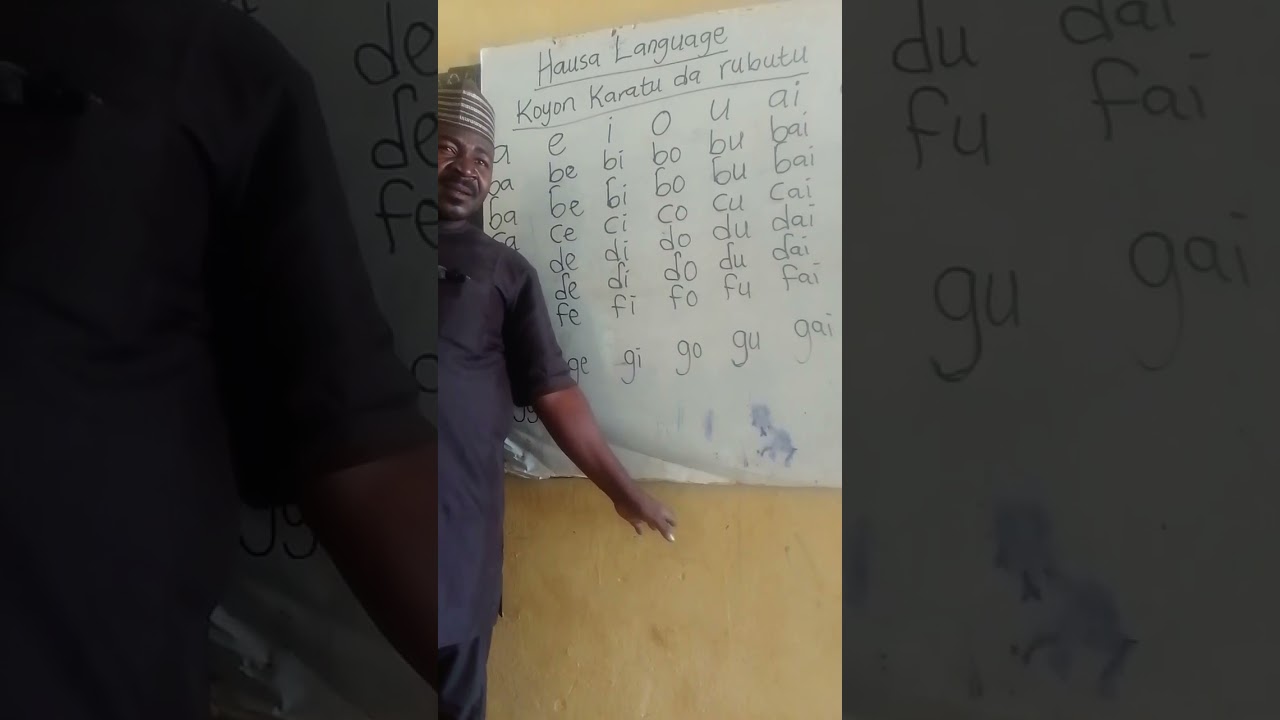 Hausa Language
Koyon Karatu da rubutu
a e i o u ai
ba be bi bo bu bai
ɓa ɓe ɓi ɓo ɓu ɓai
ca ce ci co cu cai
de di do du dai
ɗe ɗi ɗo ɗu ɗai
fe fi fo fu fai
ge gi go gu gai